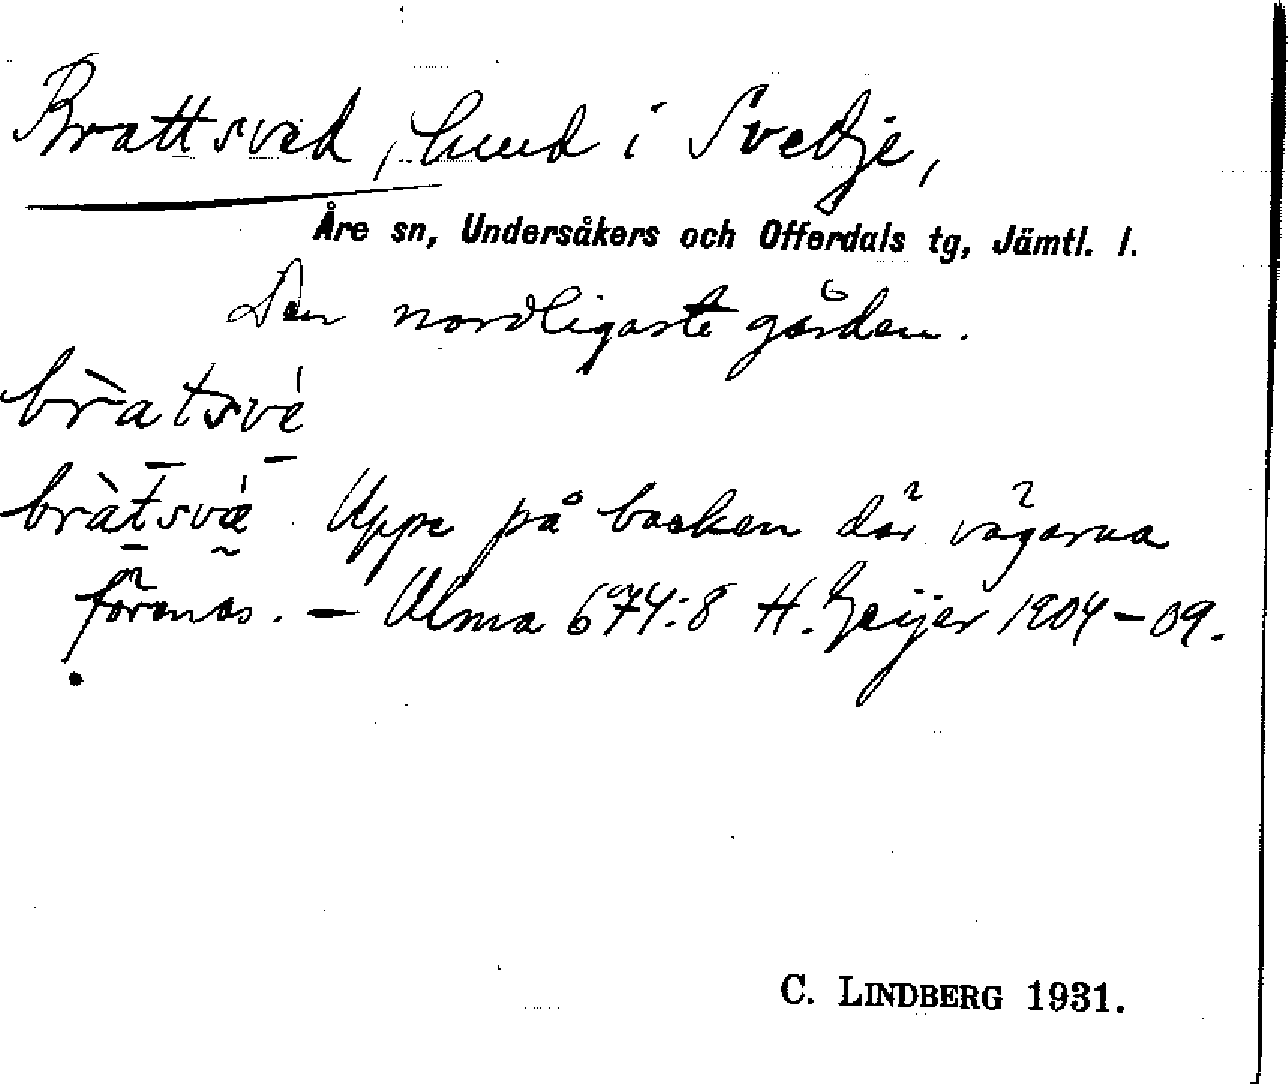 Brattsved, hmd i Svedje,
Åre sn, Undersåkers och Offerdals tg, Jämtl. l.
Den nordligaste gården.
bràtsvé
bràtsvǽ Uppe på backen där vägarna
förenas. – Ulma 674:8 H. Geijer 1904–09.
C. LINDBERG 1931.